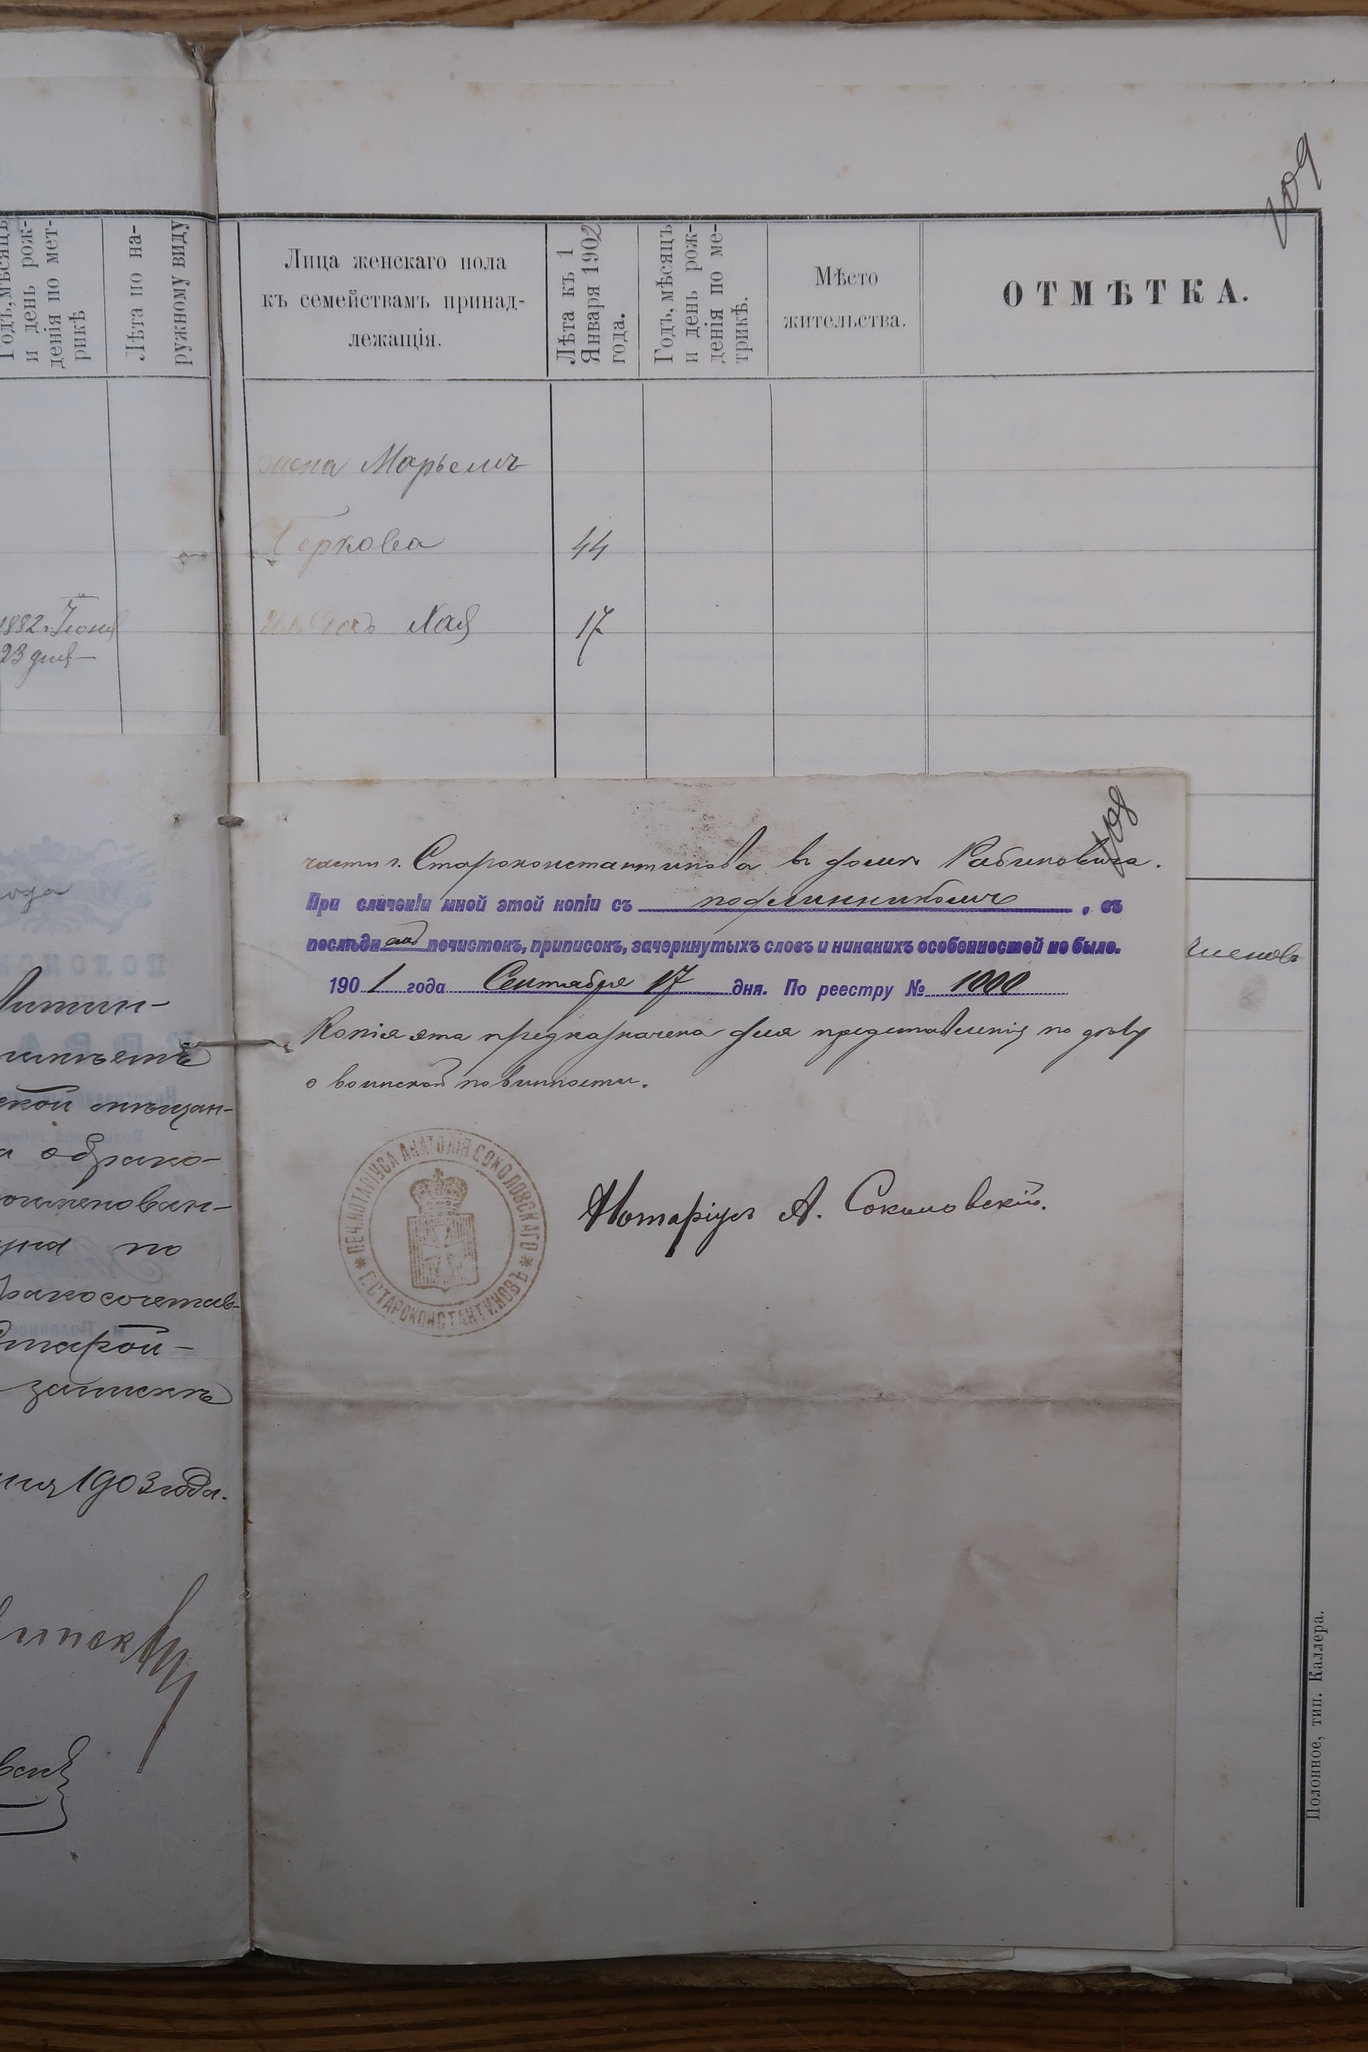 109
Годъ, мѣсяцъ
и день рож-
денія по мет-
рикѣ
Лѣта по на-
ружному виду
Лица женскаго пола
къ семействамъ принад-
лежащія.
Лѣта къ 1
Января 1902
года.
Годъ, мѣсяцъ
и день рож-
денія по ме-
трикѣ.
Мѣсто
жительства.
ОТМѢТКА.
жена Марьемъ
Беркова 44
1882 г. Іюня
23 дня
Ихъ дочь Хая 17
108
части г. Староконстантинова въ домѣ Рабиновича.
При сличеніи мной этой копіи съ подлинникомъ, въ
послѣднемъ почистокъ, приписокъ, зачеркнутыхъ словъ и никакихъ особенностей не было.
1901 года Сентября 17 дня. По реестру № 1000
Копія эта предназначена для представленія по дѣлу
о воинской повинности.
ПЕЧ. НОТАРІУСА АНАТОЛІЯ СОКОЛОВСКАГО
Г. СТАРОКОНСТАНТИНОВЪ
Нотаріусъ А. Соколовскій.
года
ской мѣщан-
а обрако-
оименован-
по
бракосочетав-
Старой-
запискѣ
1903 года.
Полонное, тип. Каллера.